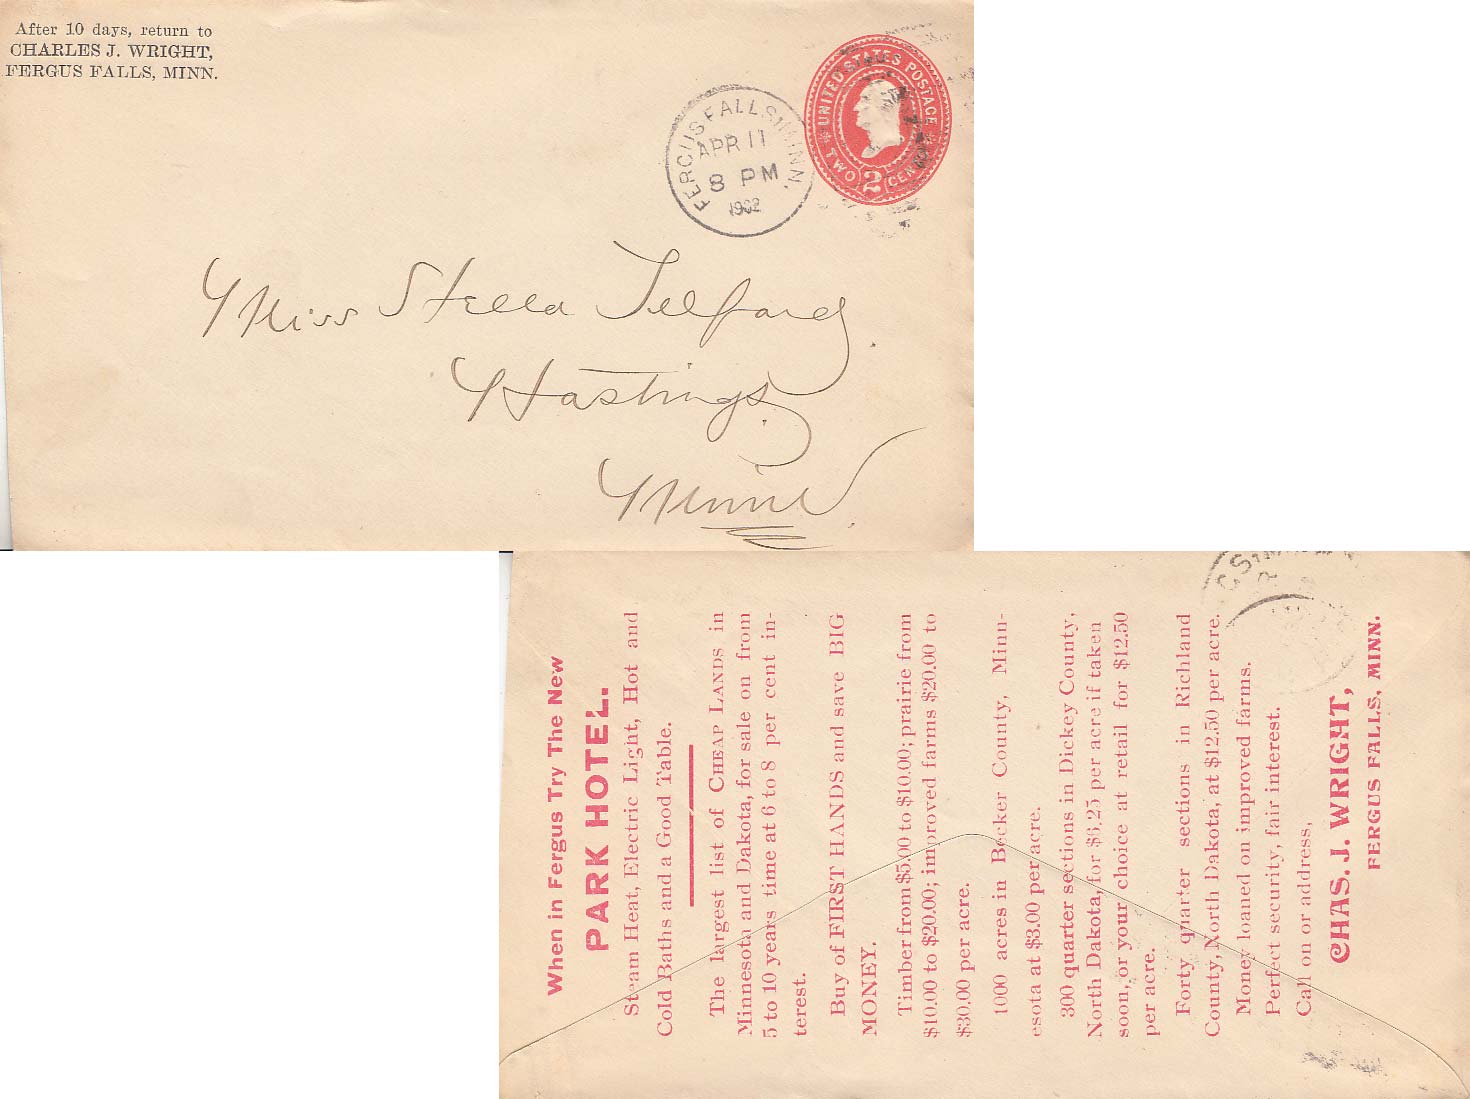 After 10 days, return to
CHARLES J. WRIGHT,
FERGUS FALLS, MINN.
FERGUS FALLS, MINN.
APR 11
8 PM
1902
UNITED STATES POSTAGE
TWO 2 CENTS
Miss Stella Telford
Hastings
Minn
When in Fergus Try The New
PARK HOTEL.
Steam Heat, Electric Light, Hot and
Cold Baths and a Good Table.
The largest list of CHEAP LANDS in
Minnesota and Dakota, for sale on from
5 to 10 years time at 6 to 8 per cent in-
terest.
Buy of FIRST HANDS and save BIG
MONEY.
Timber from $5.00 to $10.00; prairie from
$10.00 to $20.00; improved farms $20.00 to
$30.00 per acre.
1000 acres in Becker County, Minn-
esota at $3.00 per acre.
300 quarter sections in Dickey County,
North Dakota, for $6.25 per acre if taken
soon, or your choice at retail for $12.50
per acre.
Forty quarter sections in Richland
County, North Dakota, at $12.50 per acre.
Money loaned on improved farms.
Perfect security, fair interest.
Call on or address,
CHAS. J. WRIGHT,
FERGUS FALLS, MINN.